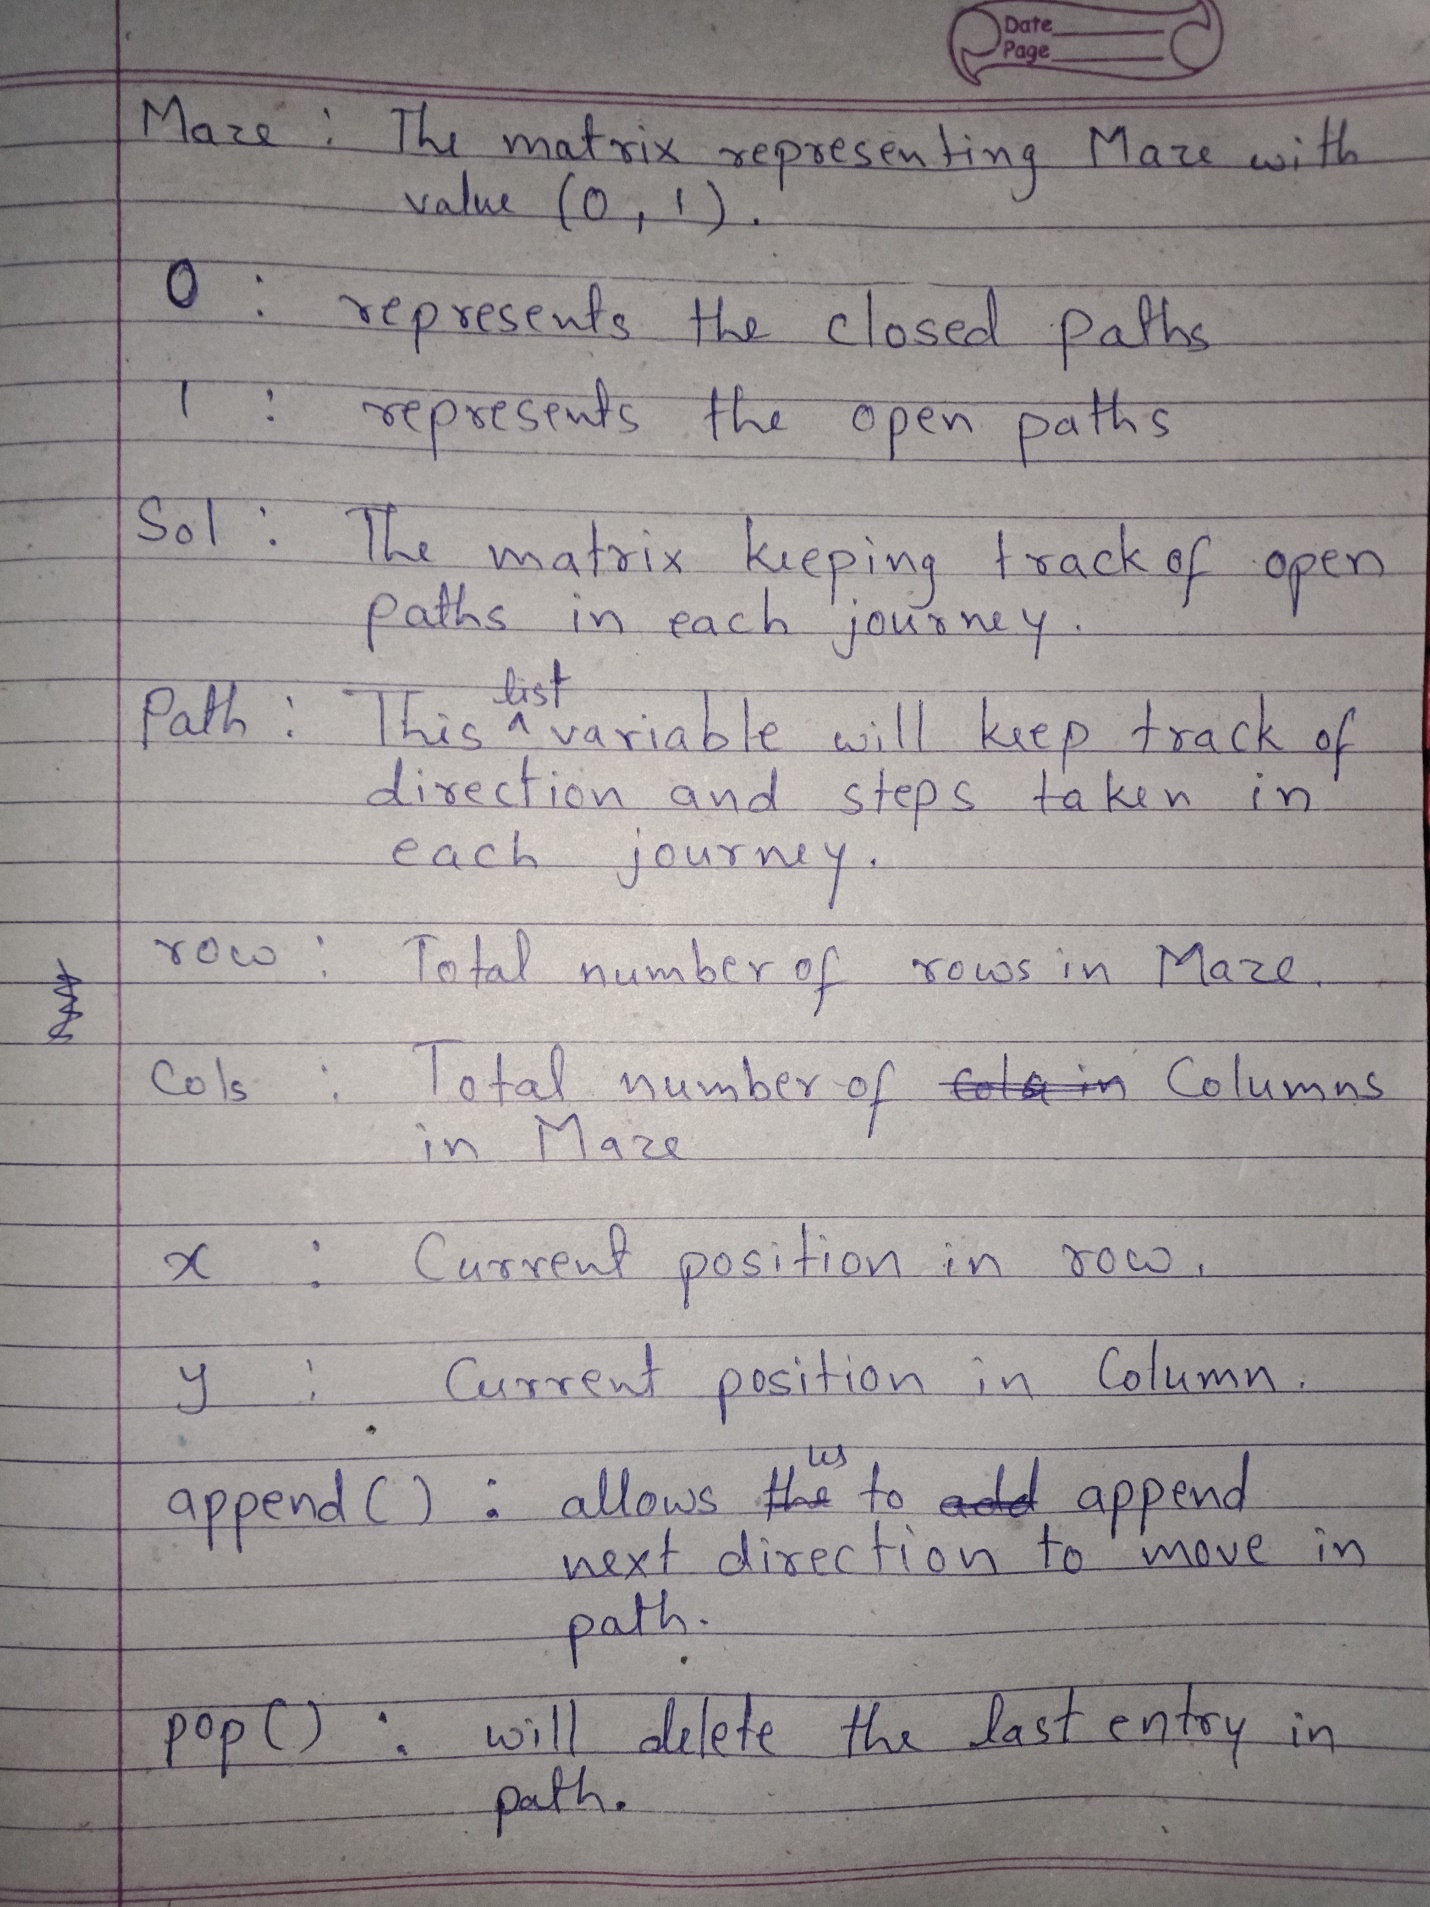 Date
Page
Maze : The matrix representing Maze with
value (0, 1).
0 : represents the closed paths
1 : represents the open paths
Sol : The matrix keeping track of open
paths in each journey.
list
Path : This ^ variable will keep track of
direction and steps taken in
each journey.
row : Total number of rows in Maze.
Cols : Total number of cols in Columns
in Maze
x : Current position in row.
y : Current position in Column.
us
append() : allows the to add append
next direction to move in
path.
pop() : will delete the last entry in
path.